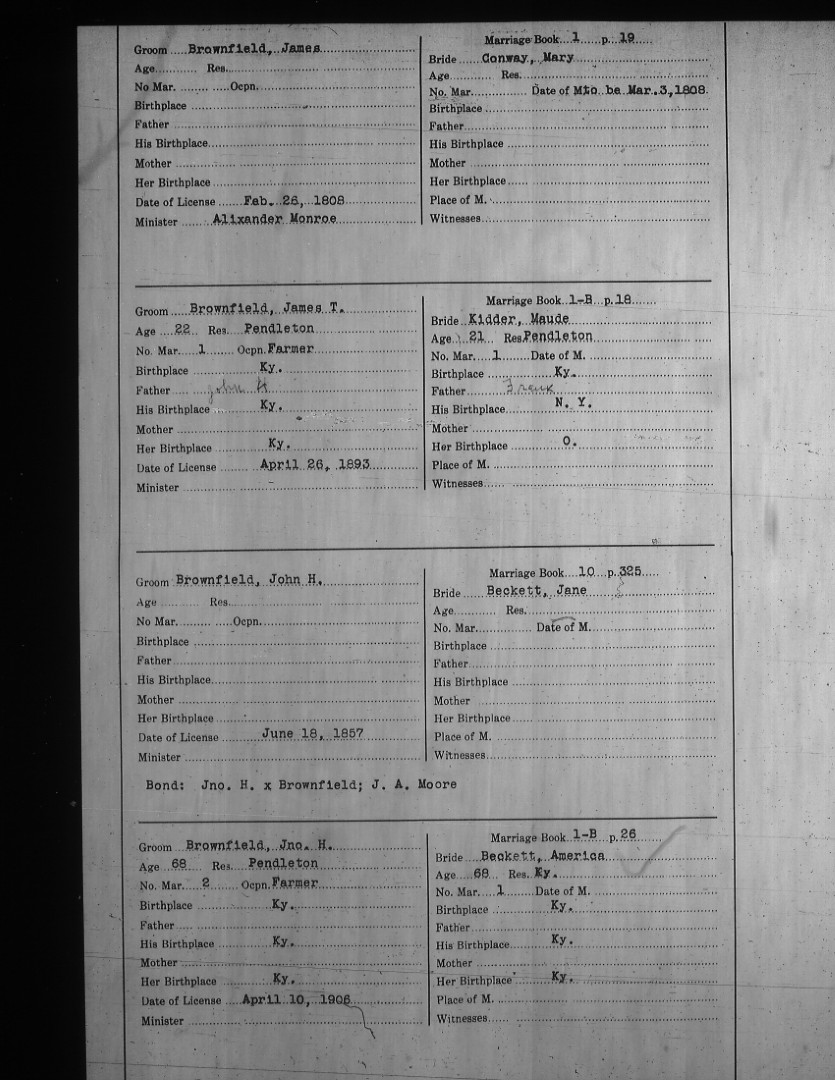 Groom Brownfield, James
Age Res.
No Mar. Ocpn.
Birthplace
Father
His Birthplace
Mother
Her Birthplace
Date of License Feb. 26, 1808
Minister Alixander Monroe
Marriage Book 1 p. 19
Bride Conway, Mary
Age Res.
No. Mar. Date of M to be Mar. 3, 1808.
Birthplace
Father
His Birthplace
Mother
Her Birthplace
Place of M.
Witnesses
Groom Brownfield, James T.
Age 22 Res. Pendleton
No. Mar. 1 Ocpn. Farmer
Birthplace Ky.
Father John H
His Birthplace Ky.
Mother
Her Birthplace Ky.
Date of License April 26, 1893
Minister
Marriage Book 1-B p. 18
Bride Kidder, Maude
Age 21 Res Pendleton
No. Mar. 1 Date of M.
Birthplace Ky.
Father
His Birthplace N. Y.
Mother
Her Birthplace O.
Place of M.
Witnesses
Groom Brownfield, John H.
Age Res.
No Mar. Ocpn.
Birthplace
Father
His Birthplace
Mother
Her Birthplace
Date of License June 18, 1857
Minister
Marriage Book 10 p. 325
Bride Beckett, Jane
Age Res.
No. Mar. Date of M.
Birthplace
Father
His Birthplace
Mother
Her Birthplace
Place of M.
Witnesses
Bond: Jno. H. x Brownfield; J. A. Moore
Groom Brownfield, Jno. H.
Age 68 Res. Pendleton
No. Mar. 2 Ocpn. Farmer
Birthplace Ky.
Father
His Birthplace Ky.
Mother
Her Birthplace Ky.
Date of License April 10, 1906
Minister
Marriage Book 1-B p. 26
Bride Beckett, America
Age 68 Res. Ky.
No. Mar. 1 Date of M.
Birthplace Ky.
Father
His Birthplace Ky.
Mother
Her Birthplace Ky.
Place of M.
Witnesses